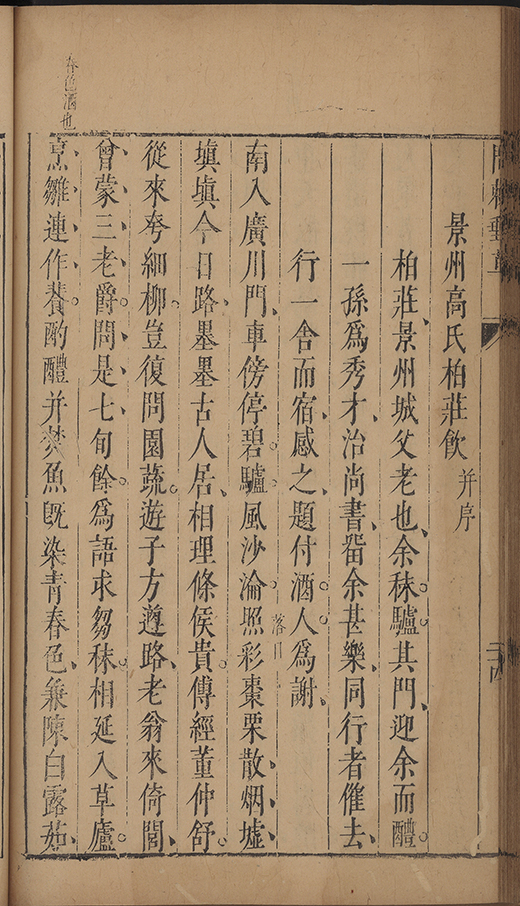 景州高氏柏莊飲并序
柏莊、景州城父老也、余秣驢。其門、迎余而醴。
一孫爲秀才、治尚書、畱余甚樂、同行者催去、
行一舍而宿、感之、題付酒人爲謝、
南入廣川門、車傍停碧驢。風沙淪照彩棗栗散烟墟、
落日
填填今日路、墨墨古人居、相理條侯貴、傳經董仲舒。
從來夸細柳。豈復問園蔬。遊子方遵路、老翁來倚閭、
曾蒙三老爵、問是七旬餘。爲語求芻秣。相延入草廬。
烹雛連作餐。酌醴并焚魚旣染青春色、兼陳白露茹、
春色酒也